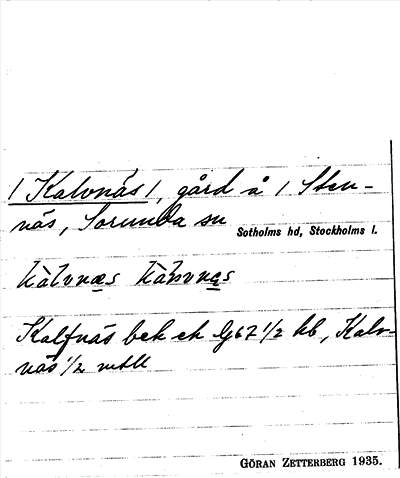 / Kalvnäs /, gård å / Sten-
näs, Sorunda sn
Sotholms hd, Stockholms l.
kàlvnæs
Kalfnäs bek ek lg 67 1/2 kb, Kalv-
näs 1/2 mtll
GÖRAN ZETTERBERG 1935.